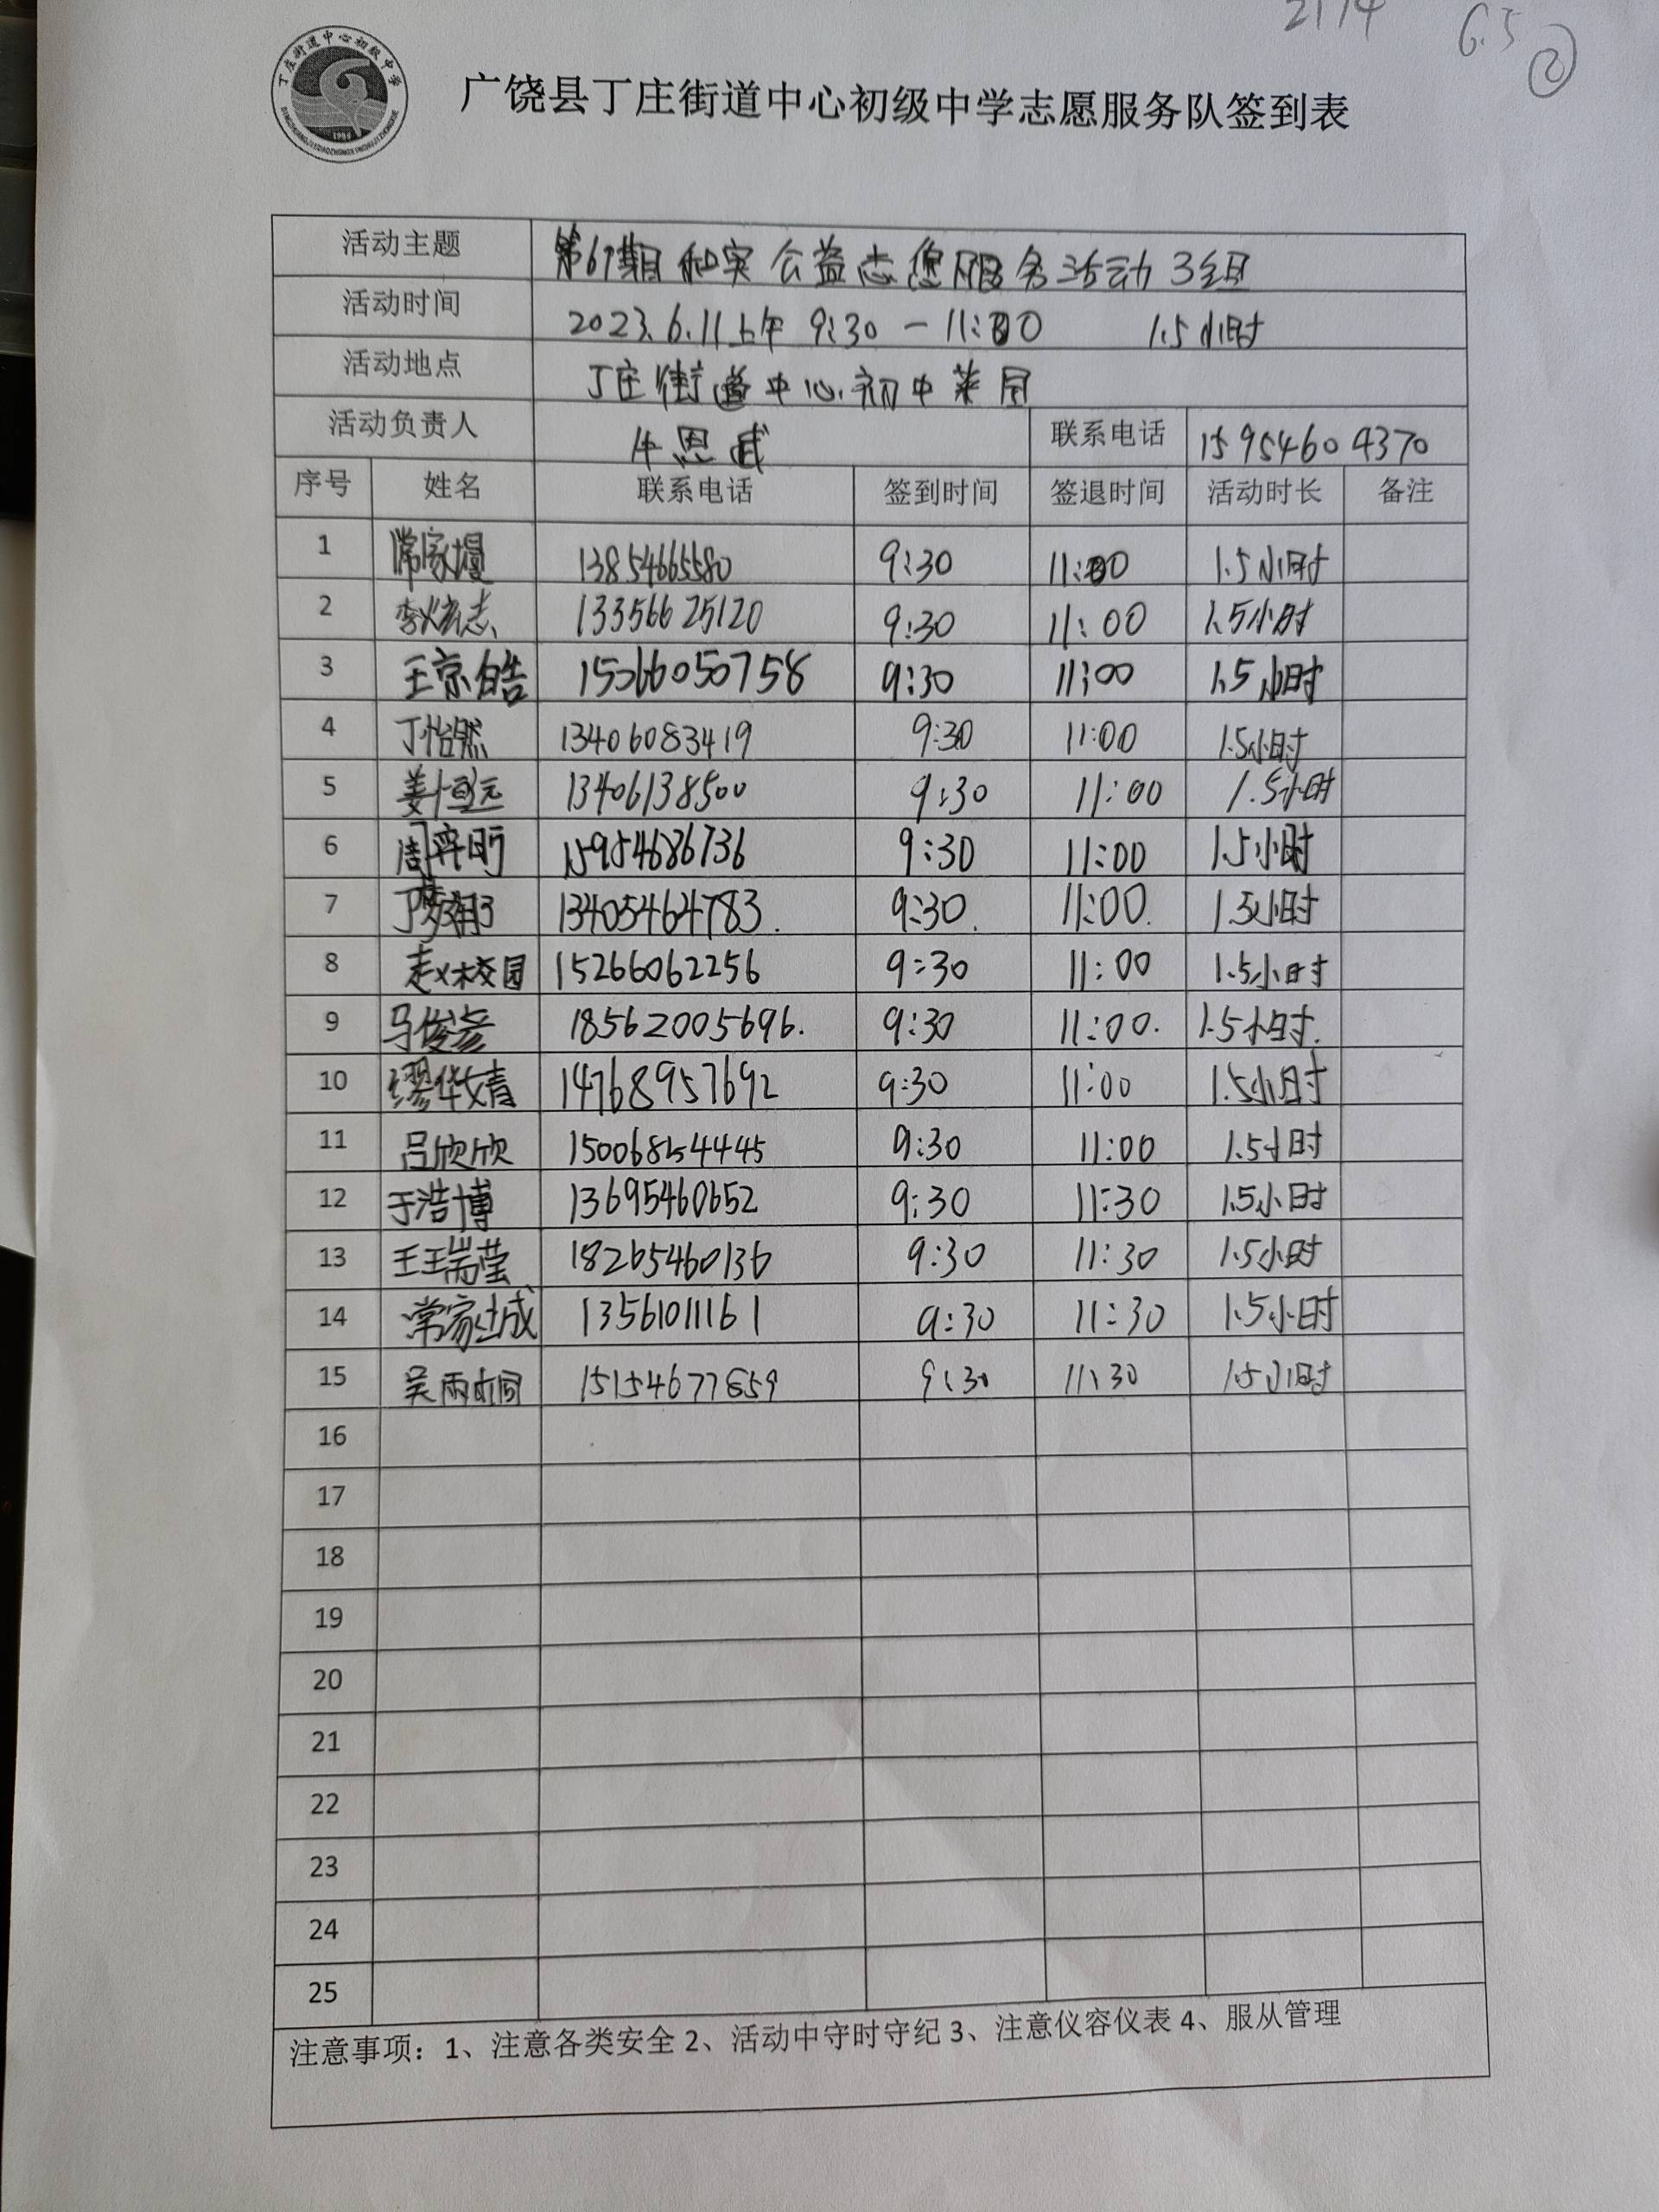 2174
6.5 ②
丁庄街道中心初级中学
1984
广饶县丁庄街道中心初级中学志愿服务队签到表
活动主题 第67期和实公益志愿服务活动3组
活动时间 2023.6.11上午 9:30 — 11:00 1.5小时
活动地点 丁庄街道中心初中菜园
活动负责人 牛恩武 联系电话 15954604370
序号 姓名 联系电话 签到时间 签退时间 活动时长 备注
1 常家墁 13854665580 9:30 11:00 1.5小时
2 李炫志 13356625120 9:30 11:00 1.5小时
3 王京皓 15266050758 9:30 11:00 1.5小时
4 丁怡然 13406083419 9:30 11:00 1.5小时
5 姜恒远 13406138500 9:30 11:00 1.5小时
6 周弈昕 15954686736 9:30 11:00 1.5小时
7 丁梦翔 13405464783. 9:30. 11:00. 1.5小时
8 赵校园 15266062256 9:30 11:00 1.5小时
9 马俊彦 18562005696. 9:30 11:00. 1.5小时.
10 缪华婧 14768957692 9:30 11:00 1.5小时
11 吕欣欣 15006854445 9:30 11:00 1.5小时
12 于浩博 13695460652 9:30 11:30 1.5小时
13 王王瑞莹 18265460136 9:30 11:30 1.5小时
14 常家城 13561011161 9:30 11:30 1.5小时
15 吴雨 15154677859 9:30 11:30 1.5小时
16
17
18
19
20
21
22
23
24
25
注意事项：1、注意各类安全 2、活动中守时守纪 3、注意仪容仪表 4、服从管理